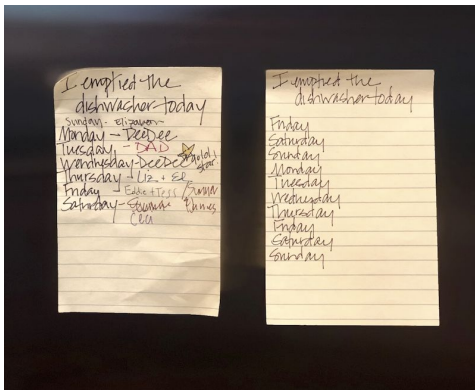 I emptied the
dishwasher today
Sunday - Elizabeth
Monday - DeeDee
Tuesday - DAD
Wendnesday - DeeDee gold star
Thursday - Liz + Ed
Friday - Eddie + Tess
Saturday -
Ceci
I emptied the
dishwasher today
Friday
Saturday
Sunday
Monday
Tuesday
Wednesday
Thursday
Friday
Saturday
Sunday